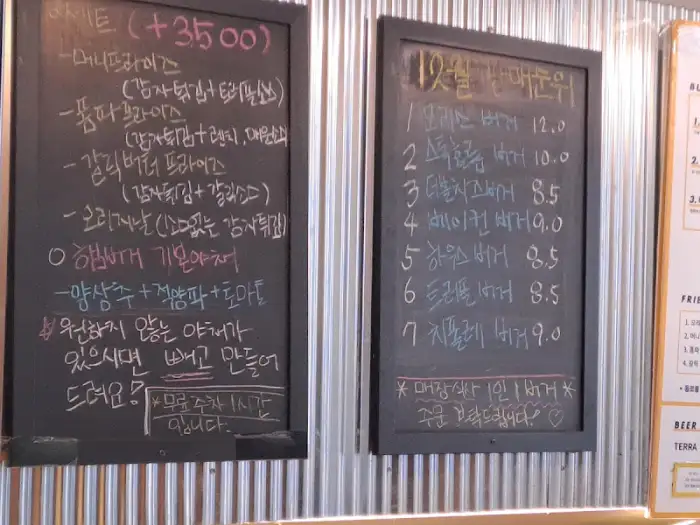 (+3500)
-머니프라이즈
(감자튀김+트러플소스)
-폼파프라이즈
(감자튀김+렌치,매운소스)
-갈릭버터 프라이즈
(감자튀김+갈릭소스)
-오리지날(소스없는 감자튀김)
○ 햄버거 기본야채
-양상추+적양파+토마토
원하지 않는 야채가
있으시면 빼고 만들어
드려요?
*무료주차 1시간
입니다.
12월 판매순위
1 버거 12.0
2 버거 10.0
3 더블치즈버거 8.5
4 베이컨버거 9.0
5 하우스버거 8.5
6 트러플버거 8.5
7 치폴레 버거 9.0
*매장식사 1인 1버거*
주문 부탁드립니다! ♡
BU
1.
2.
3.
FRIE
1.
2. 머니
3. 폼파
4. 갈릭
BEER
TERRA